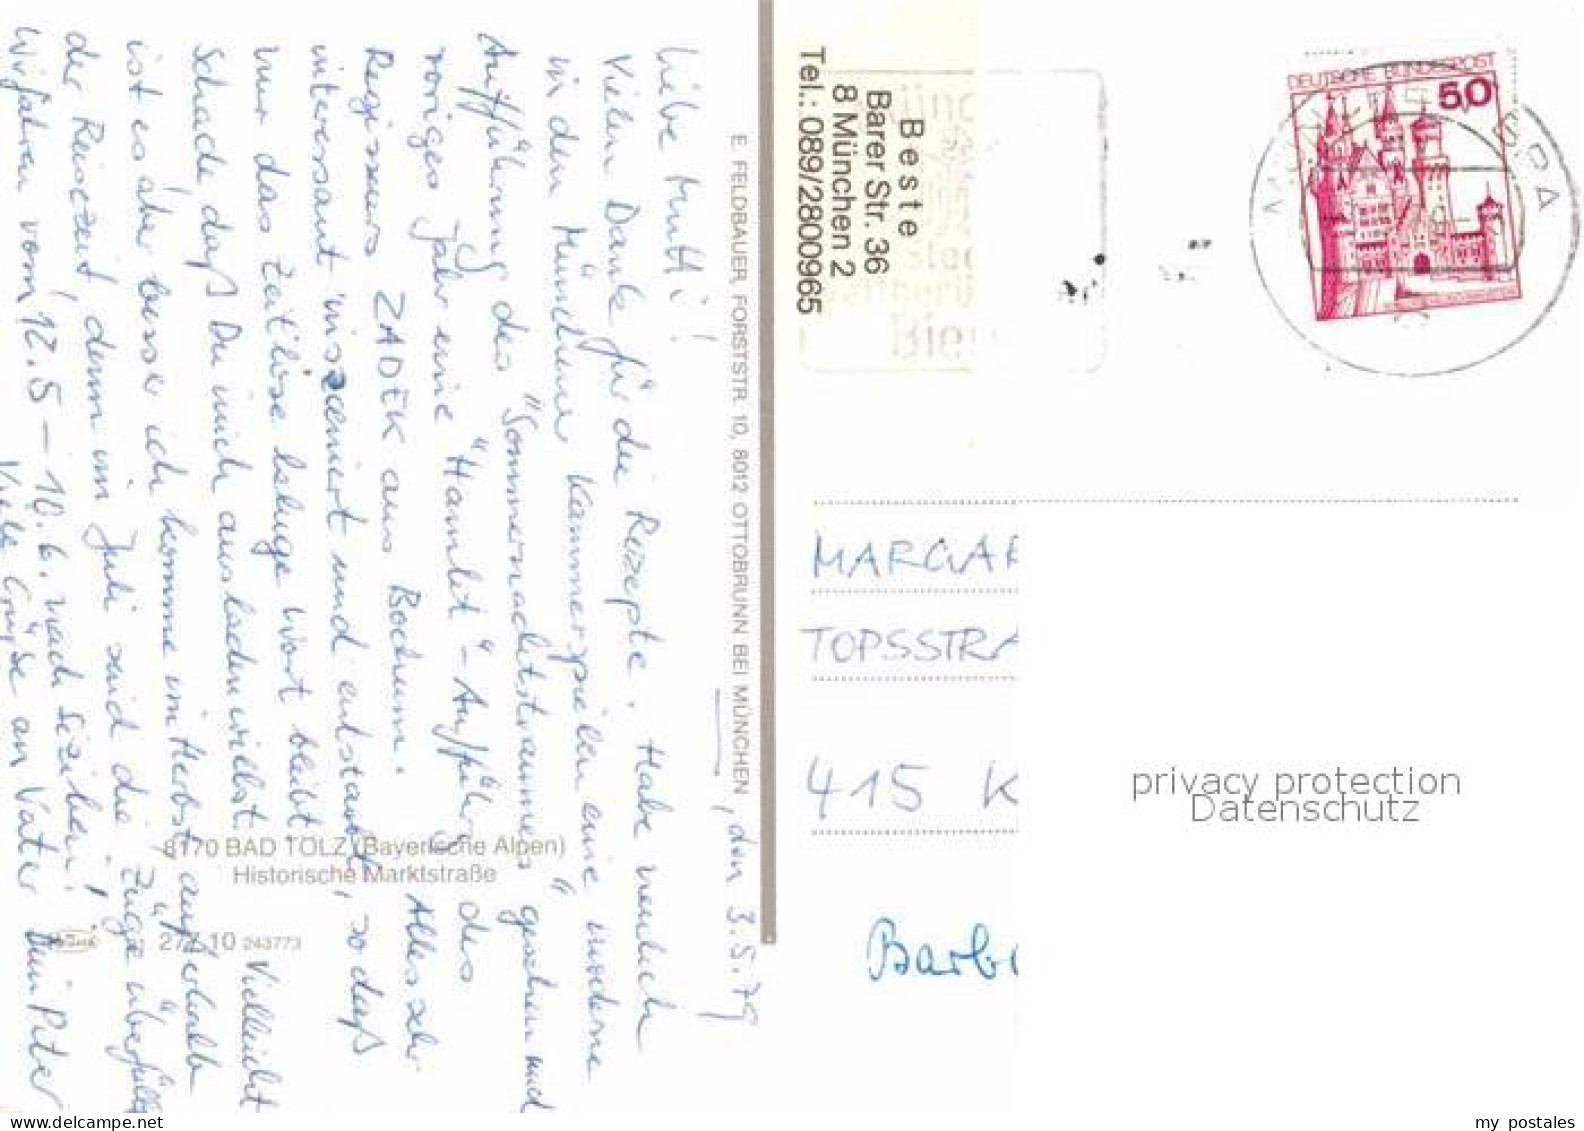 München, den 3.5.79
Liebe Mutti!
Vielen Dank für die Rezepte. Habe neulich
in den Münchener Kammerspielen eine moderne
Aufführung des "Sommernachtstraumes" gesehen und
voriges Jahr eine "Hamlet"-Aufführg des
Regisseurs ZADEK aus Bochum. Alles sehr
interessant inszeniert und entstaubt, so daß
nur das zeitlose kluge Wort bleibt.
Schade, daß Du mich ausladen willst. Vielleicht
ist es aber besser ich komme im Herbst außerhalb
der Reisezeit, denn im Juli sind die Züge überfüllt
Wir fahren vom 12.5 – 10.6. nach Sizilien!
Viele Grüße an Vater Dein Peter
E. FELDBAUER, FORSTSTR. 10, 8012 OTTOBRUNN BEI MÜNCHEN
8170 BAD TÖLZ (Bayerische Alpen)
Historische Marktstraße
277 10 243773
Beste
Barer Str. 36
8 München 2
Tel.: 089/2800965
DEUTSCHE BUNDESPOST
50
MARGAR
TOPSSTRA
415 K
Barb
privacy protection
Datenschutz
my postales